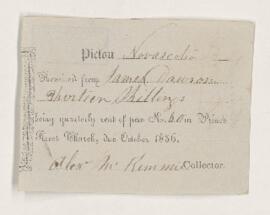 Pictou Novascotia
Received from James Dawson
Thirteen Shillings
being quarterly rent of pew No. 60 in Prince
Street Church, due October 1836.
Alex Mc Kimmie Collector.